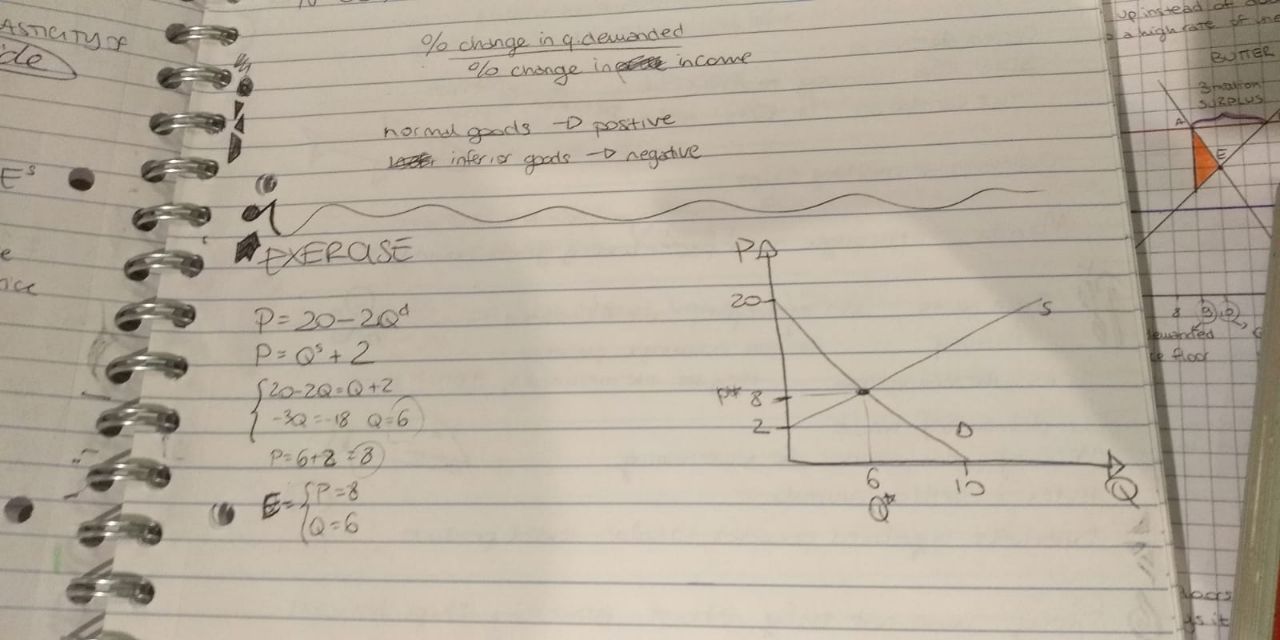 ASTICITY OF
de
E^s
e
ice
% change in q. demanded
% change in income
normal goods → positive
inferior goods → negative
EXERCISE
P = 20 - 2Q^d
P = Q^s + 2
20-2Q = Q+2
-3Q = -18 Q=6
P = 6+2 = 8
E = P = 8
Q = 6
P
20
S
P* 8
2
D
6
10
Q*
Q
up instead of
a high rate of
BUTTER
3 million
SURPLUS
A
E
8 9 10
demanded
ce floor